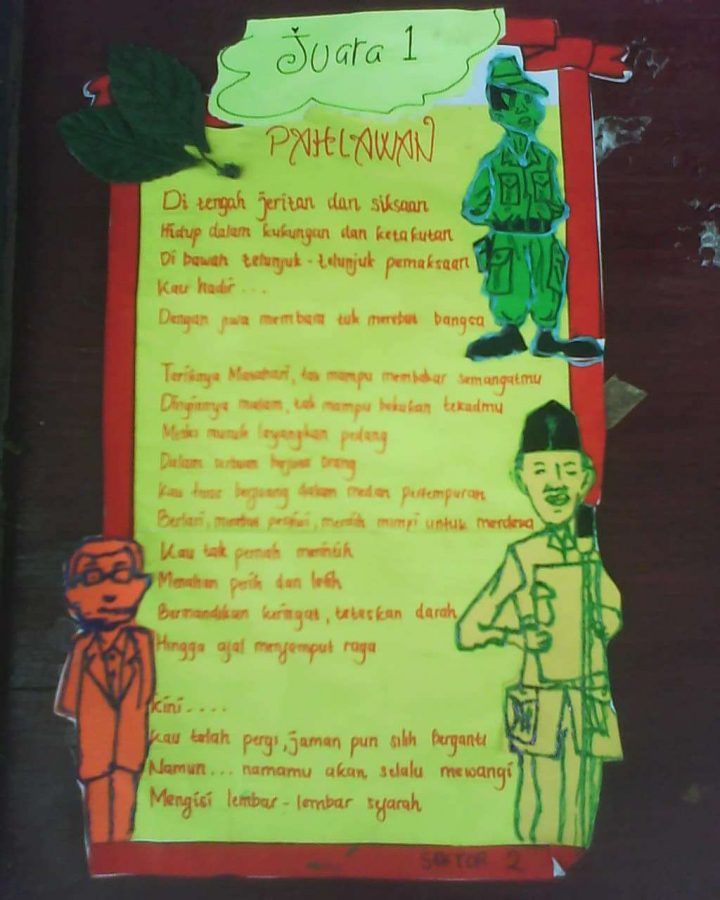 Juara 1
PAHLAWAN
Di tengah jeritan dan siksaan
Hidup dalam kukungan dan ketakutan
Di bawah telunjuk-telunjuk pemaksaan
Kau hadir...
Dengan jiwa membara tuk merebut bangsa
Teriknya Matahari, tak mampu membakar semangatmu
Dinginnya malam, tak mampu bekukan tekadmu
Meski musuh layangkan pedang
Dalam seribuan
Kau terus berjuang dalam medan pertempuran
Berlari, merebut, meraih mimpi untuk merdeka
Kau tak pernah merintih
Menahan perih dan letih
Bermandikan keringat, teteskan darah
Hingga ajal menjemput raga
Kini....
Kau telah pergi, jaman pun silih berganti
Namun... namamu akan selalu mewangi
Mengisi lembar-lembar sejarah
SEKTOR 2